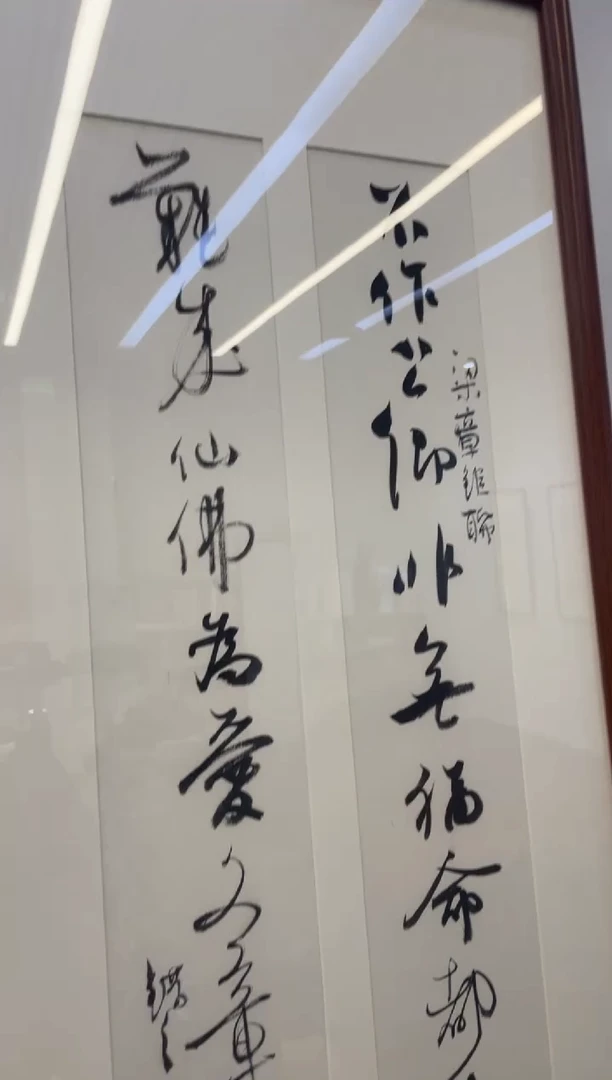 梁章鉅聯
不作公卿非無福命都
難成仙佛為愛文章